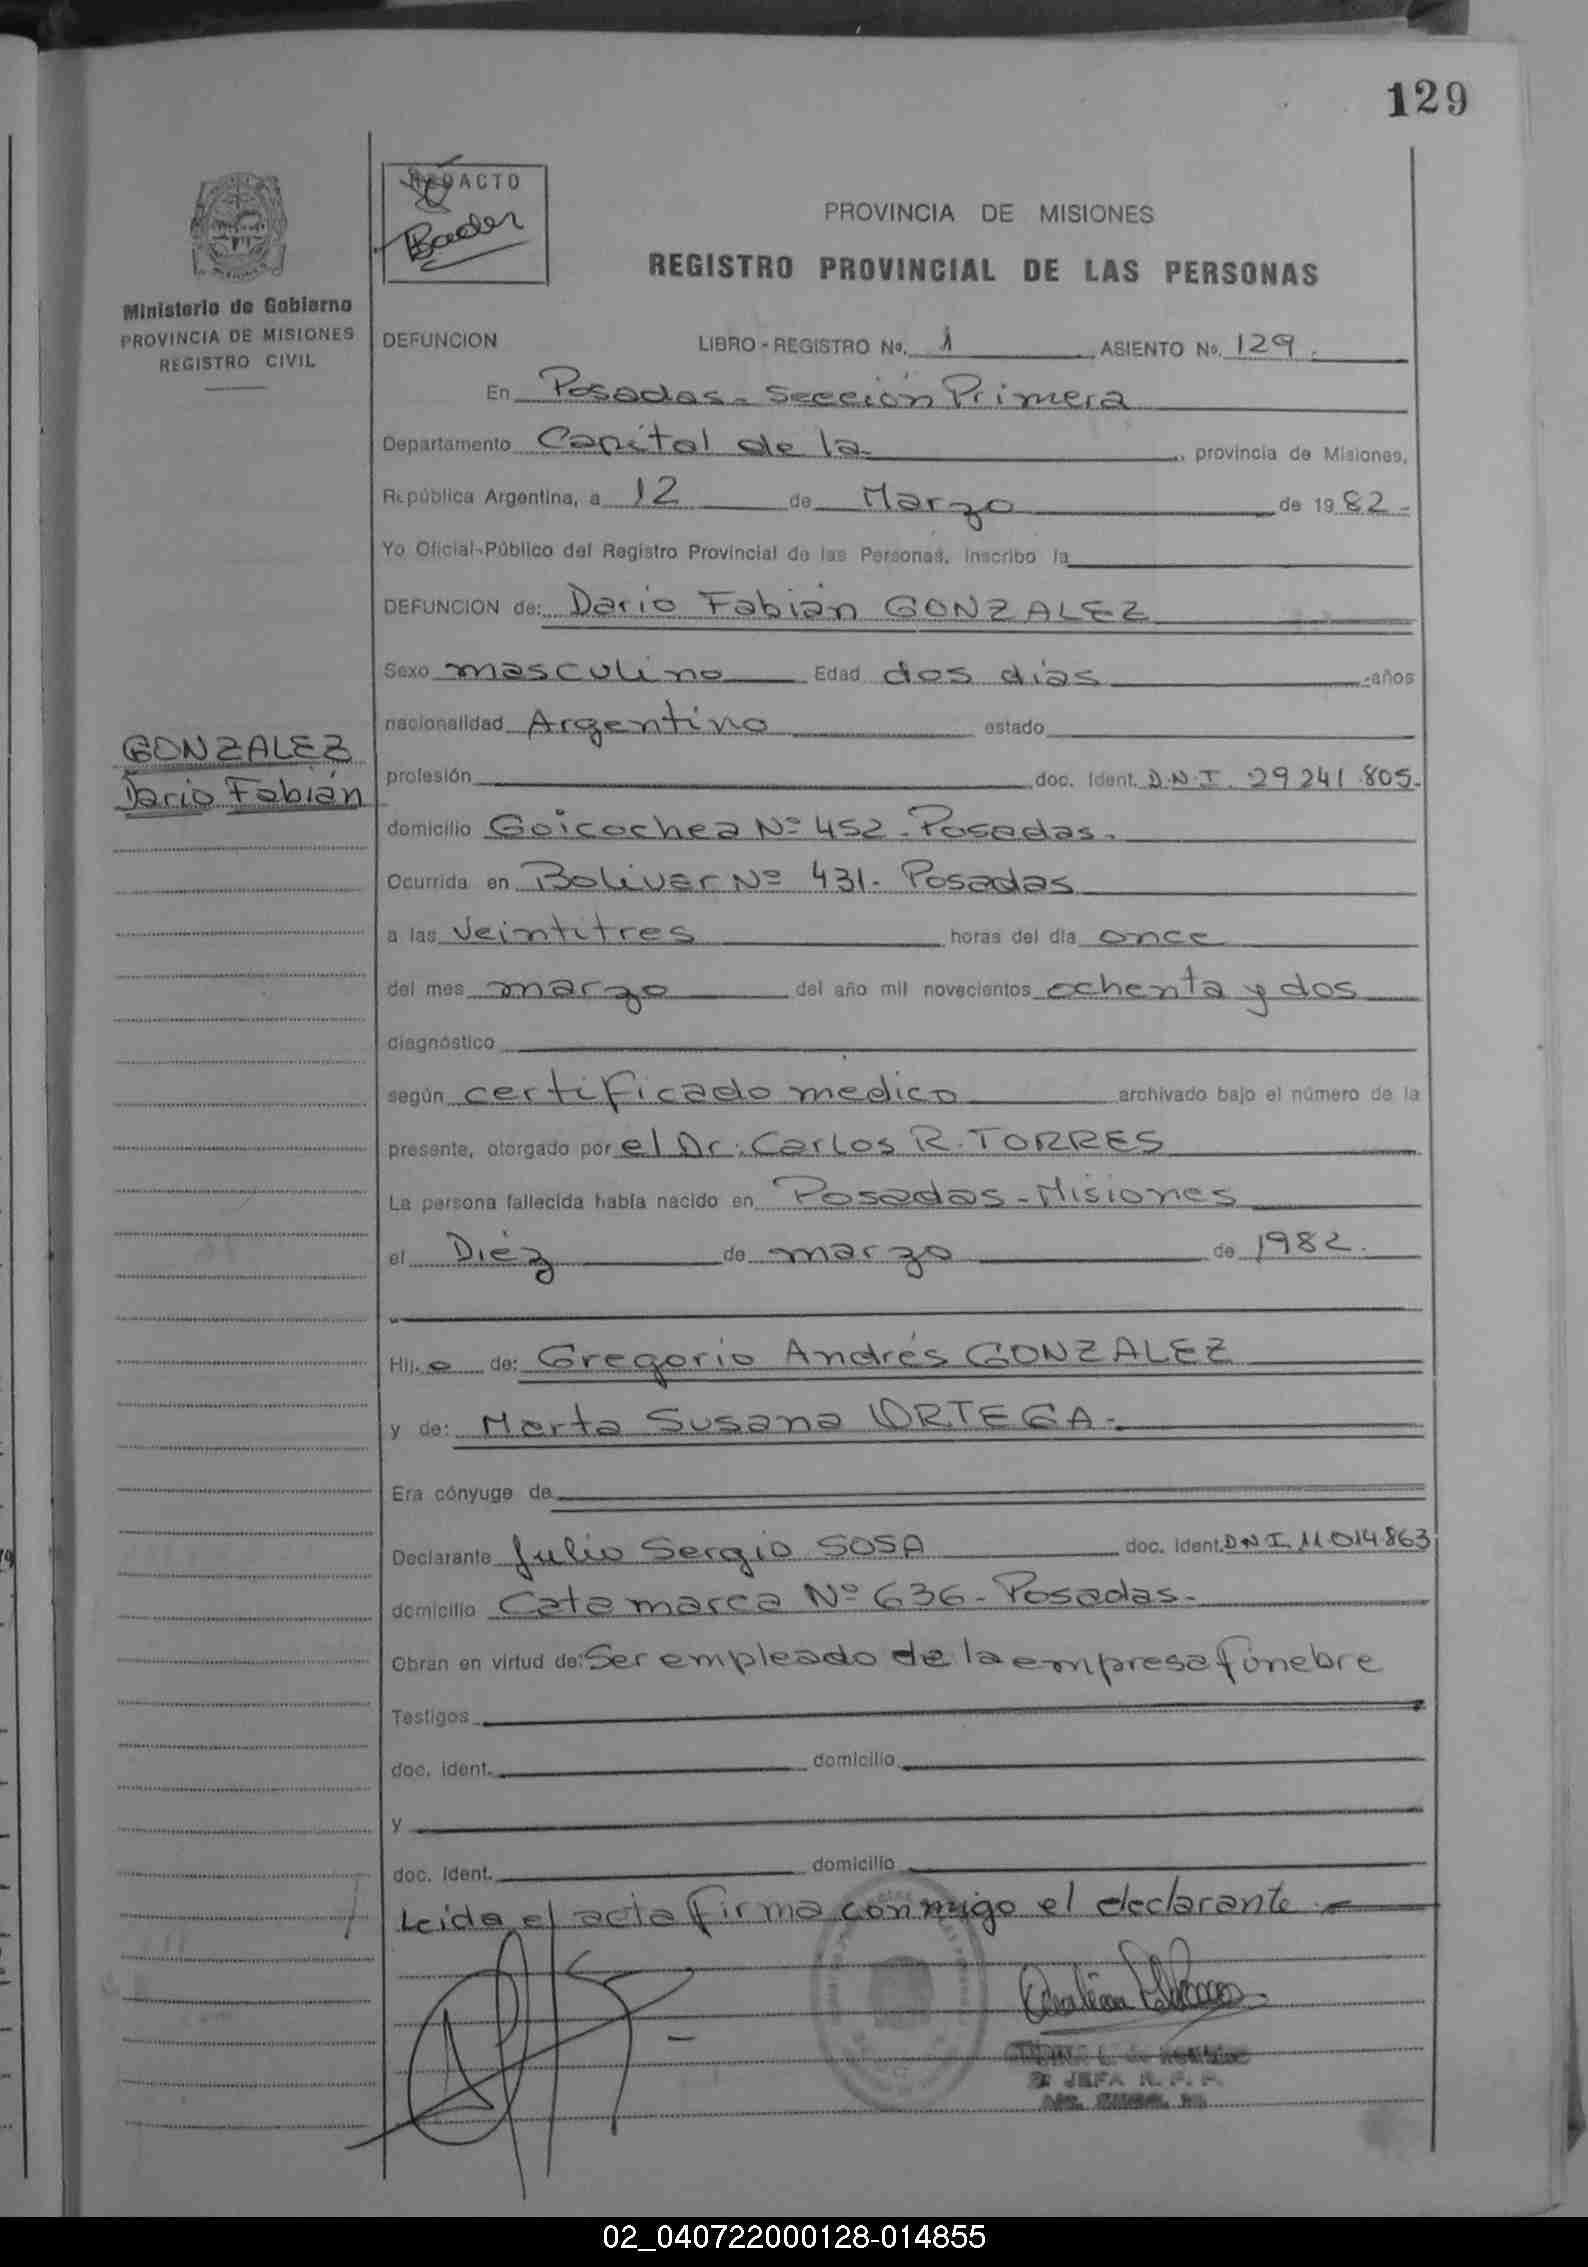 129
REDACTO
Bader
PROVINCIA DE MISIONES
REGISTRO PROVINCIAL DE LAS PERSONAS
Ministerio de Gobierno
PROVINCIA DE MISIONES
REGISTRO CIVIL
DEFUNCION LIBRO - REGISTRO No. 1 ASIENTO No. 129.
En Posadas - Sección Primera
Departamento Capital de la, provincia de Misiones,
República Argentina, a 12 de Marzo de 1982.-
Yo Oficial Público del Registro Provincial de las Personas, inscribo la
DEFUNCION de: Dario Fabián GONZALEZ
Sexo masculino Edad dos días años
nacionalidad Argentino estado
GONZALEZ
Dario Fabián
profesión doc. Ident. D.N.I. 29 241.805.
domicilio Goicochea Nº 452. Posadas.
Ocurrida en Bolivar Nº 431. Posadas
a las veintitres horas del día once
del mes marzo del año mil novecientos ochenta y dos
diagnóstico
según certificado medico archivado bajo el número de la
presente, otorgado por el Dr. Carlos R. TORRES
La persona fallecida había nacido en Posadas - Misiones
el Diéz de marzo de 1982.
Hij o de: Gregorio Andrés GONZALEZ
y de: Marta Susana ORTEGA.
Era cónyuge de
Declarante Julio Sergio SOSA doc. Ident. D.N.I. 11.014.863
domicilio Catamarca Nº 636 - Posadas.
Obran en virtud de: Ser empleado de la empresa fúnebre
Testigos
doc. ident. domicilio
y
doc. ident. domicilio
Leida el acta firma conmigo el declarante.
JEFA R. P. P.
02_040722000128-014855